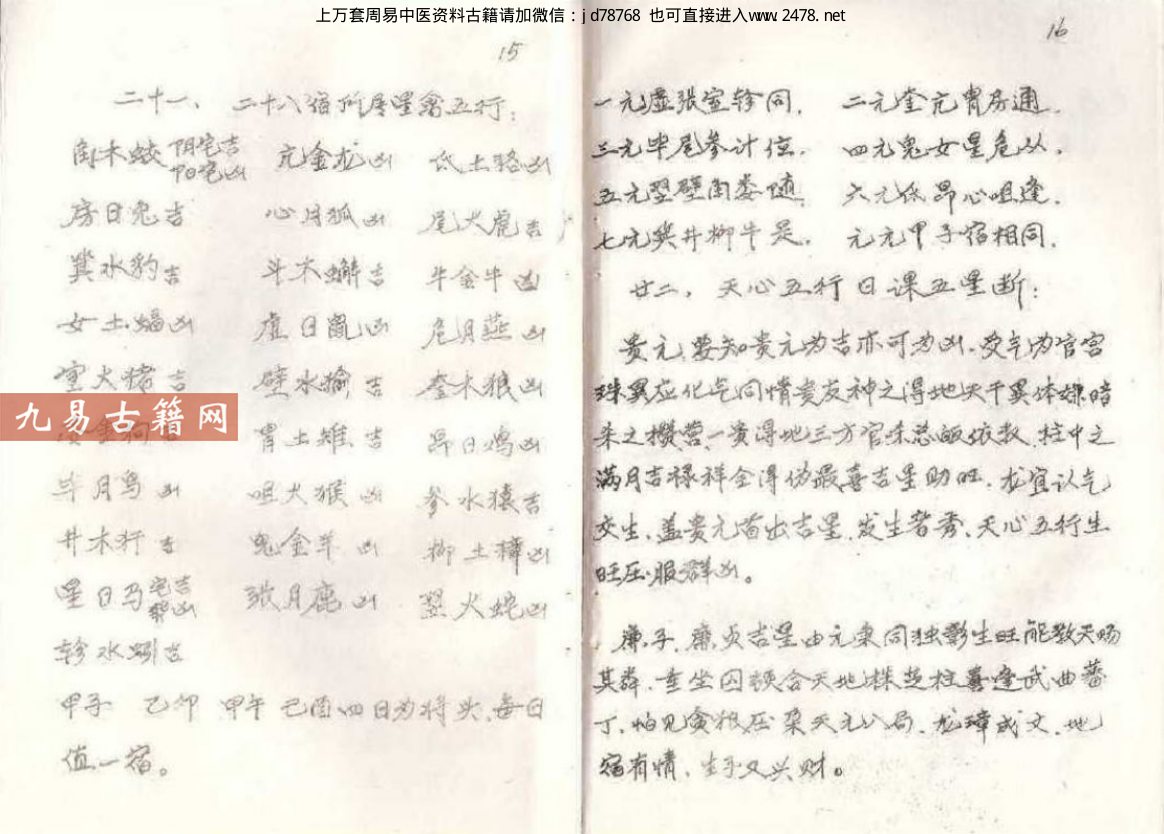 上万套周易中医资料古籍请加微信：jd78768 也可直接进入www.2478.net
15
二十一、二十八宿所属星禽五行：
角木蛟 阴宅吉 阳宅凶 亢金龙凶 低土骆凶
房日兔吉 心月狐凶 尾火虎吉
箕水豹吉 斗木蟹吉 牛金牛凶
女土蝠凶 虚日鼠凶 危月燕凶
室火猪吉 壁水输吉 奎木狼凶
九易古籍网
胃土雉吉 昴日鸡凶
毕月鸟凶 咀火猴凶 参水猿吉
井木犴吉 鬼金羊凶 柳土獐凶
星日马 宅吉 葬凶 张月鹿凶 翌火蛇凶
轸水蚓吉
甲子 乙卯 甲午 己酉四日为将头，每日
值一宿。
16
一元虚张室轸同， 二元奎亢胃房通，
三元毕尾参计位， 四元鬼女星危从，
五元翌壁角娄随， 六元低昴心咀逢，
七元箕井柳牛是， 元元甲子宿相同，
廿二，天心五行日课五星断：
贵元，要知贵元为吉亦可为凶，受气为官宫
化气同情贵友神之得地天干異体嫌暗
杀之攒营一贵得地三方官杀总皈依敖，柱中之
满月吉禄祥全得伪最喜吉星助旺，龙宜认气
交生，盖贵元首出吉星，发生者秀，天心五行生
旺压服群凶。
廉子，廉贞吉星由元来同独影生旺能教天赐
其麟，重坐囚合天地株芝柱喜逢武曲蕃
丁，怕见贪狼压杂天元八局，龙璋成文，地
宿有情，生子又兴财。